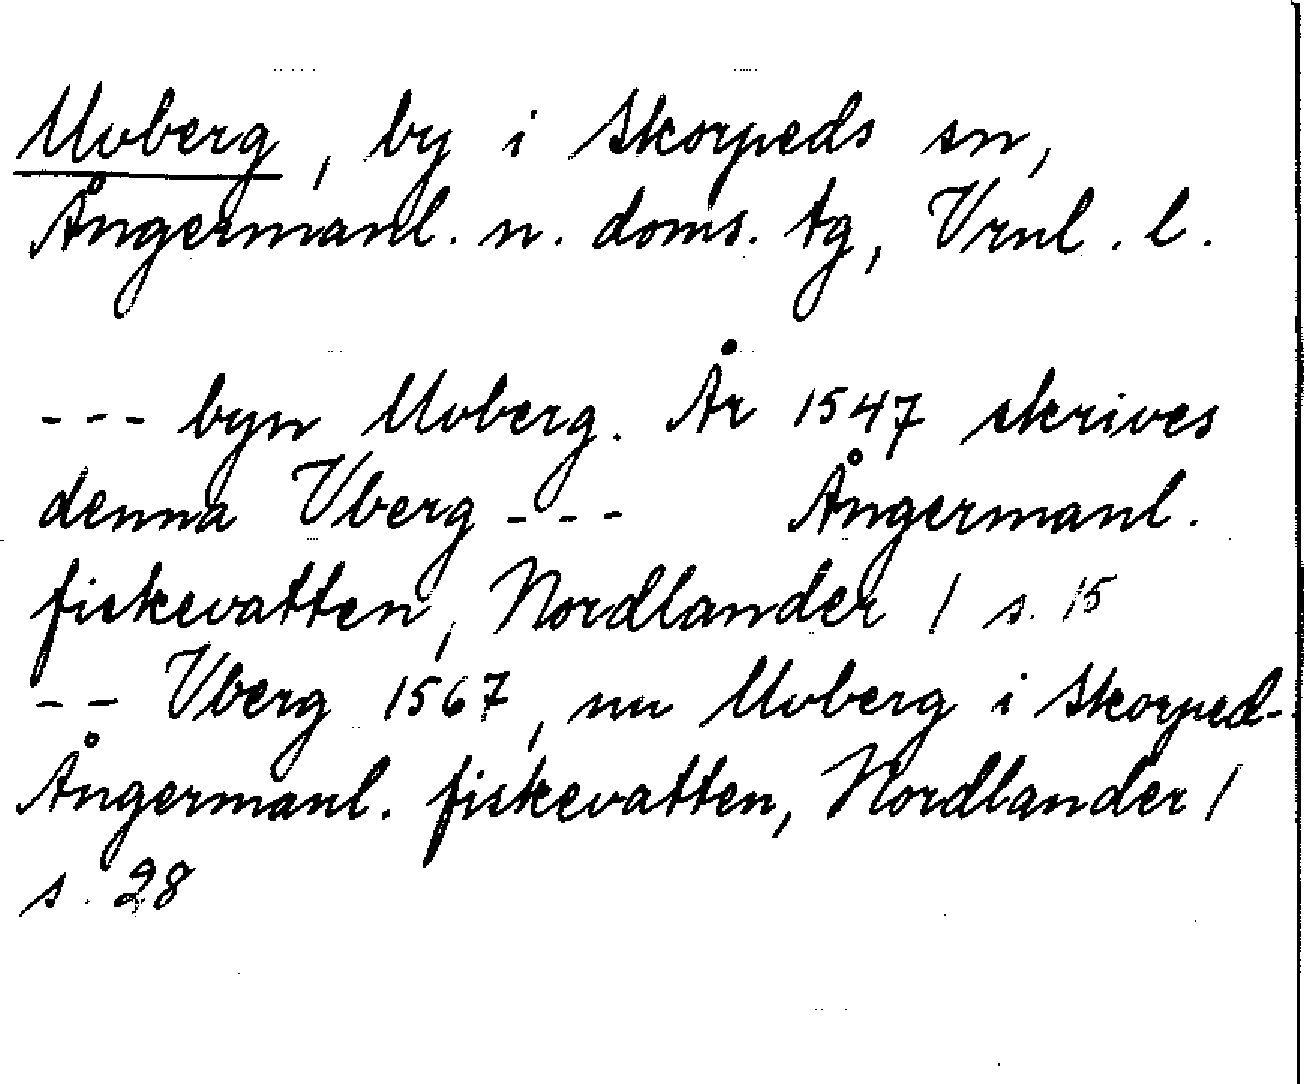 Uvberg, by i Skorpeds sn,
Ångermanl. n. doms. tg, Vrnl. l.
--- byn Uvberg. År 1547 skrives
denna Vberg --- Ångermanl.
fiskevatten, Nordlander / s. 15
-- Vberg 1567, nu Uvberg i Skorped-
Ångermanl. fiskevatten, Nordlander /
s. 28